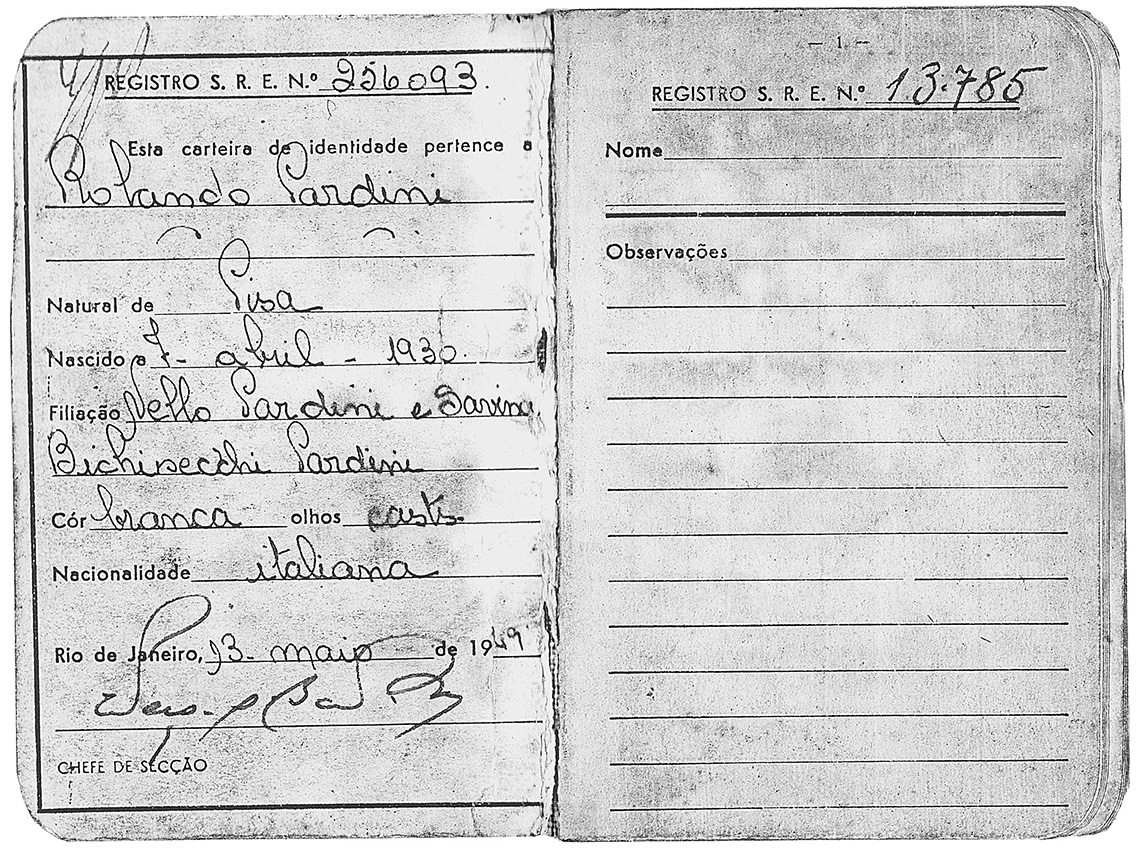 REGISTRO S. R. E. N.º 256093.
Esta carteira de identidade pertence a
Rolando Pardini
Natural de Pisa
Nascido a 7- abril - 1930.
Filiação Nello Pardini e Savina
Bichisecchi Pardini
Côr branca olhos casts.
Nacionalidade italiana
Rio de Janeiro, 13- maio de 1949
CHEFE DE SECÇÃO
— 1 —
REGISTRO S. R. E. N.º 13.785
Nome
Observações